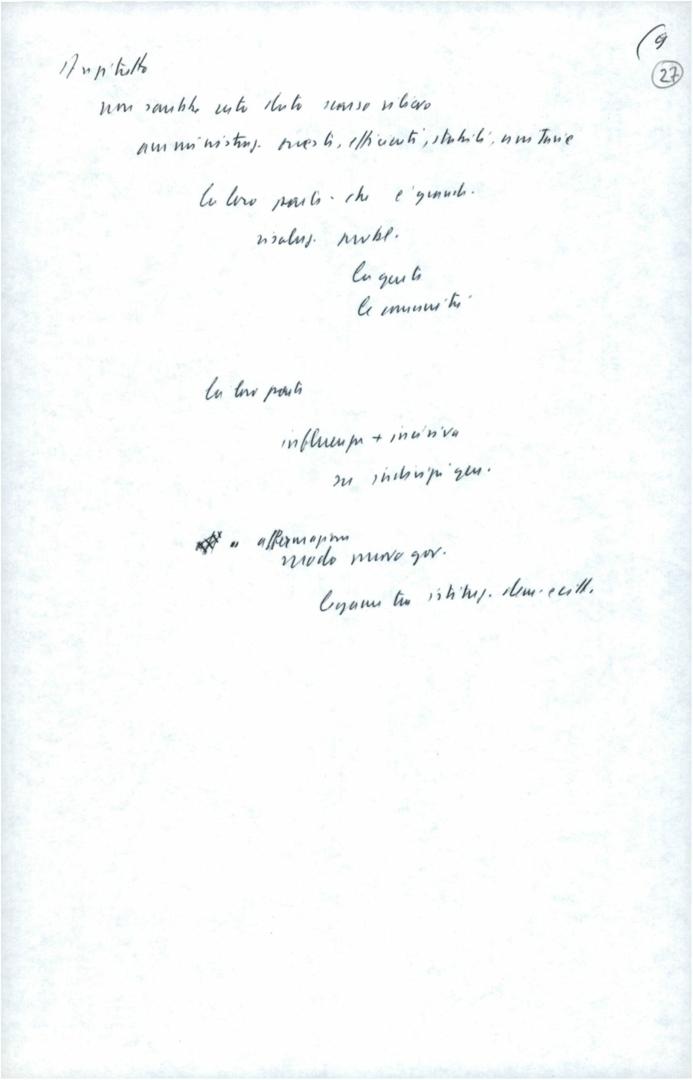 (9
27
non sarebbe certo dato scarso rilievo
amministraz. onesti, efficienti, stabili, unitarie
La loro parte - che è grande.
risoluz. probl.
la gente
le comunità
La loro parte
influenza + incisiva
su indirizzi gen.
affermazione
modo nuovo gov.
legame tra istituz. dem. e citt.